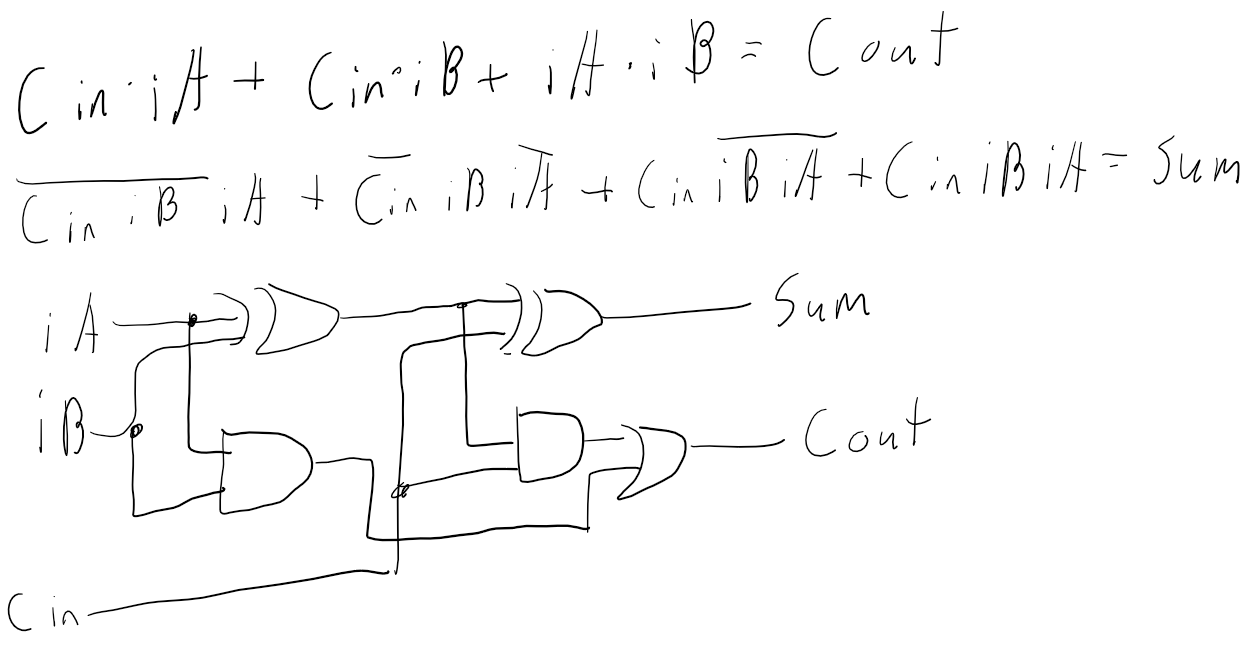 Cin·iA + Cin·iB + iA·iB = Cout
C̅i̅n̅ ̅i̅B̅ iA + C̅i̅n̅ iB i̅A̅ + Cin i̅B̅ ̅i̅A̅ + Cin iB iA = Sum
iA
Sum
iB
Cout
Cin